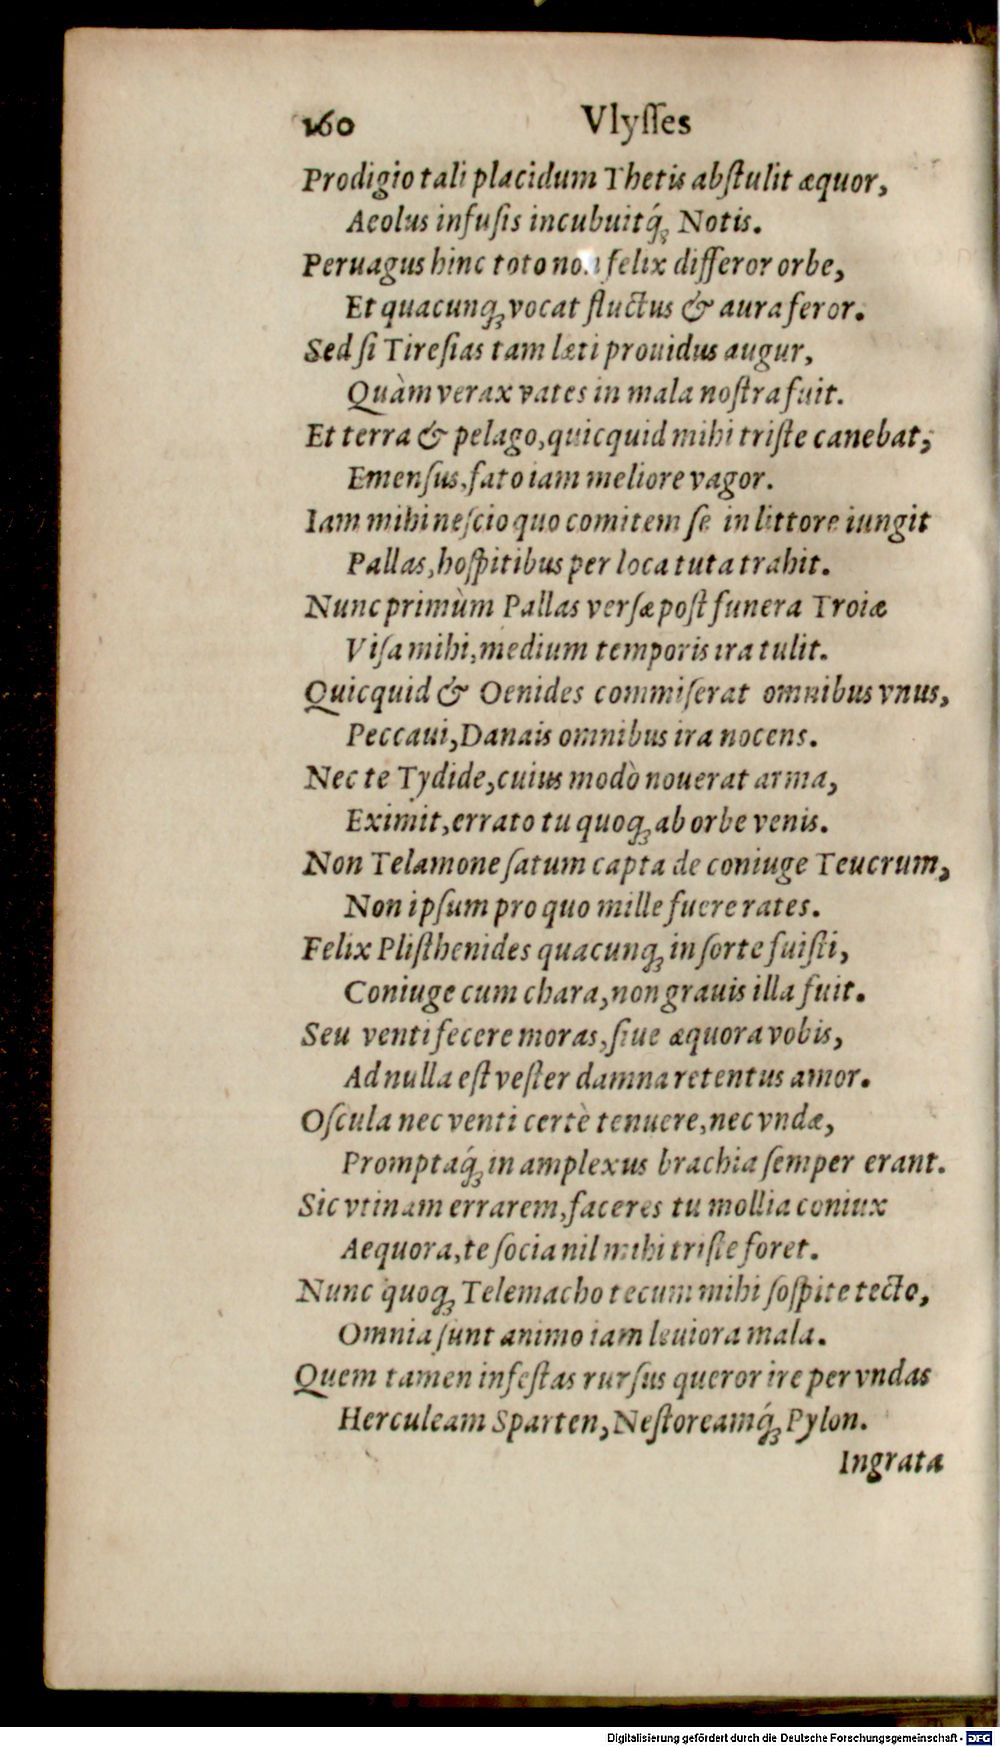 160 Vlyſſes
Prodigio tali placidum Thetis abſtulit æquor,
Aeolus infuſis incubuitq́; Notis.
Peruagus hinc toto non felix differor orbe,
Et quacunq; vocat fluctus & aura feror.
Sed ſi Tireſias tam læti prouidus augur,
Quàm verax vates in mala noſtra fuit.
Et terra & pelago, quicquid mihi triſte canebat,
Emenſus, fato iam meliore vagor.
Iam mihi neſcio quo comitem ſe in littore iungit
Pallas, hoſpitibus per loca tuta trahit.
Nunc primùm Pallas verſæ poſt funera Troiæ
Viſa mihi, medium temporis ira tulit.
Quicquid & Oenides commiſerat omnibus vnus,
Peccaui, Danais omnibus ira nocens.
Nec te Tydide, cuius modò nouerat arma,
Eximit, errato tu quoq; ab orbe venis.
Non Telamone ſatum capta de coniuge Teucrum,
Non ipſum pro quo mille fuere rates.
Felix Pliſthenides quacunq; in ſorte fuiſti,
Coniuge cum chara, non grauis illa fuit.
Seu venti fecere moras, ſiue æquora vobis,
Ad nulla eſt veſter damna retentus amor.
Oſcula nec venti certè tenuere, nec vndæ,
Promptaq́; in amplexus brachia ſemper erant.
Sic vtinam errarem, faceres tu mollia coniux
Aequora, te ſocia nil mihi triſte foret.
Nunc quoq; Telemacho tecum mihi ſoſpite tecto,
Omnia ſunt animo iam leuiora mala.
Quem tamen infeſtas rurſus queror ire per vndas
Herculeam Sparten, Neſtoreamq́; Pylon.
Ingrata
Digitalisierung gefördert durch die Deutsche Forschungsgemeinschaft - DFG